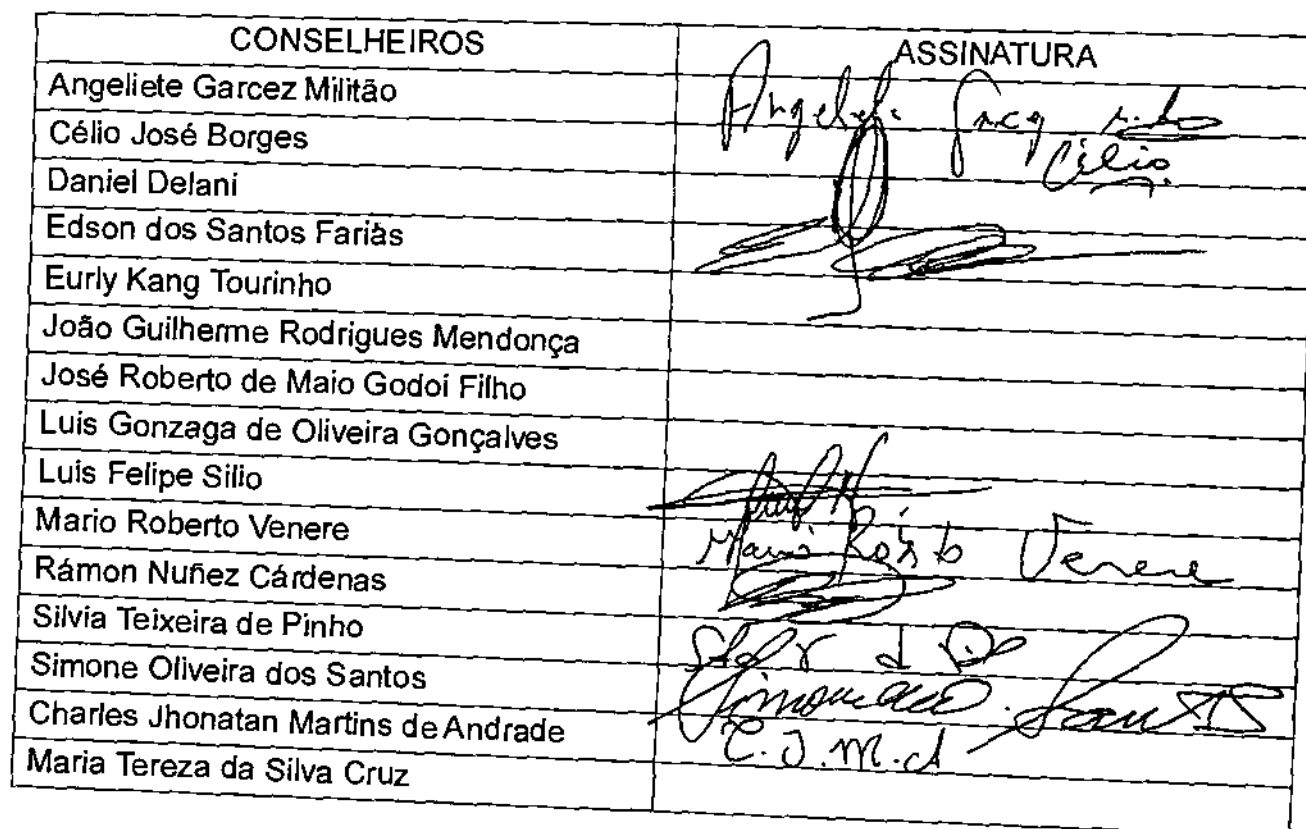 CONSELHEIROS ASSINATURA
Angeliete Garcez Militão
Célio José Borges Célio
Daniel Delani
Edson dos Santos Farias
Eurly Kang Tourinho
João Guilherme Rodrigues Mendonça
José Roberto de Maio Godoi Filho
Luis Gonzaga de Oliveira Gonçalves
Luis Felipe Silio
Mario Roberto Venere Mario Roberto Venere
Rámon Nuñez Cárdenas
Silvia Teixeira de Pinho
Simone Oliveira dos Santos
Charles Jhonatan Martins de Andrade C.J.M.d
Maria Tereza da Silva Cruz